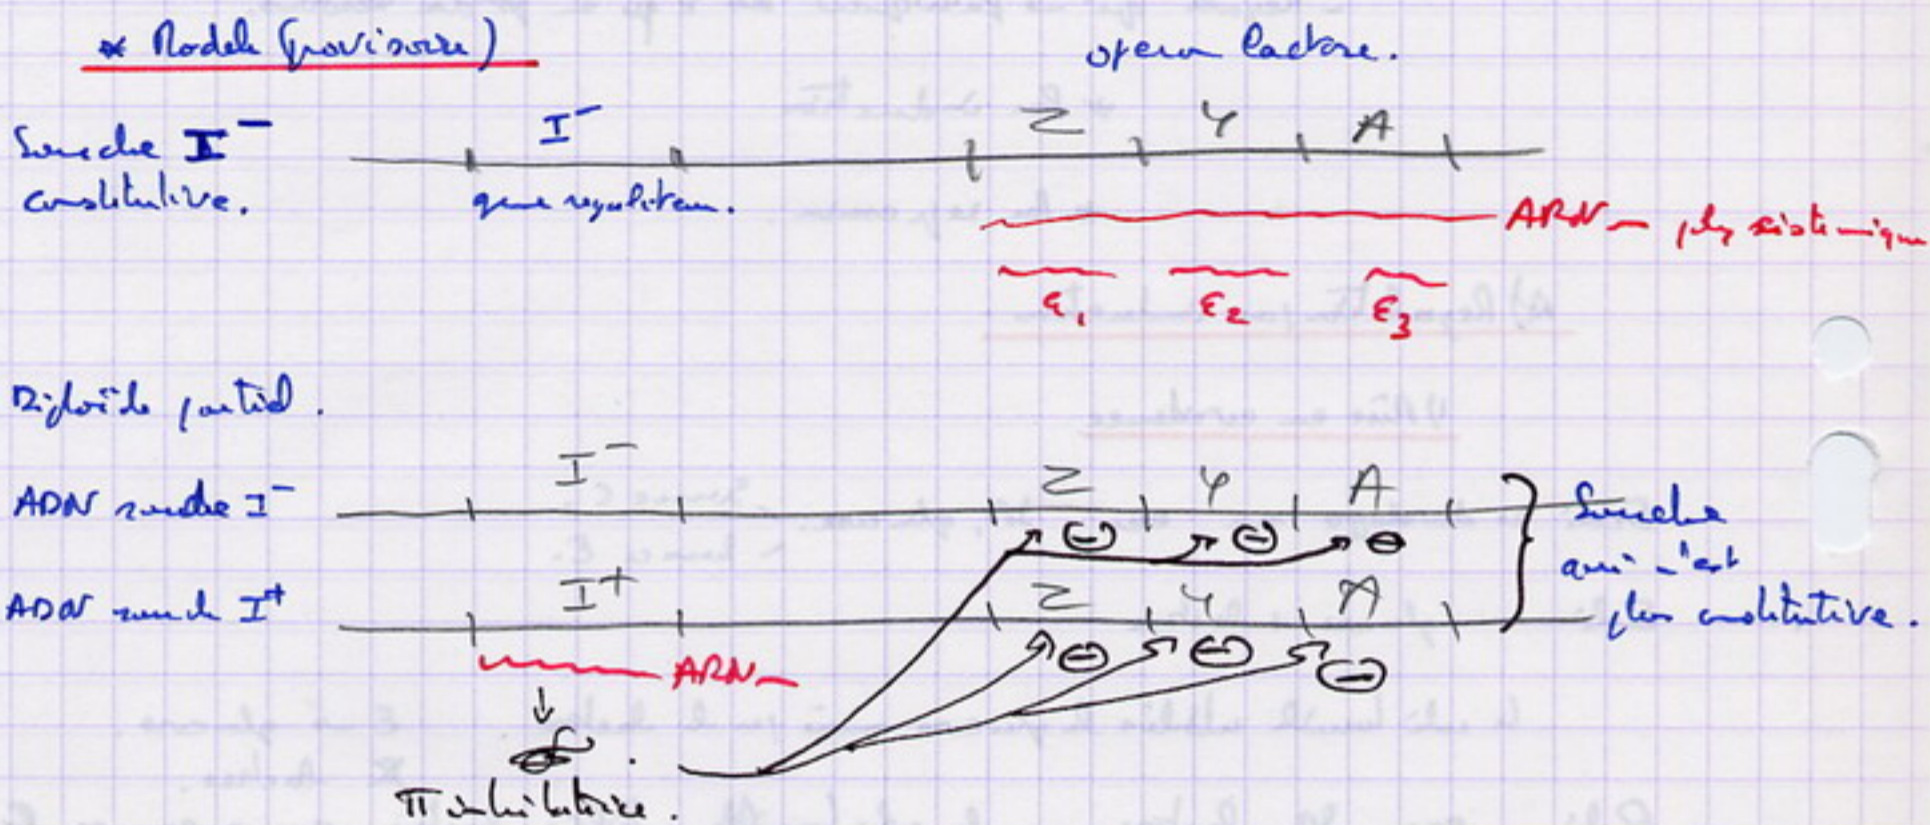 * Modèle (provisoire)
opéron lactose.
Souche I⁻
constitutive.
I⁻
gène régulateur.
Z Y A
ARNm polycistronique
ε1 ε2 ε3
Diploïde partiel.
ADN souche I⁻
I⁻
Z Y A
⊖ ⊖ ⊖
ADN souche I⁺
I⁺
Z Y A
⊖ ⊖ ⊖
Souche
qui n'est
plus constitutive.
ARNm
↓
π inhibitrice.